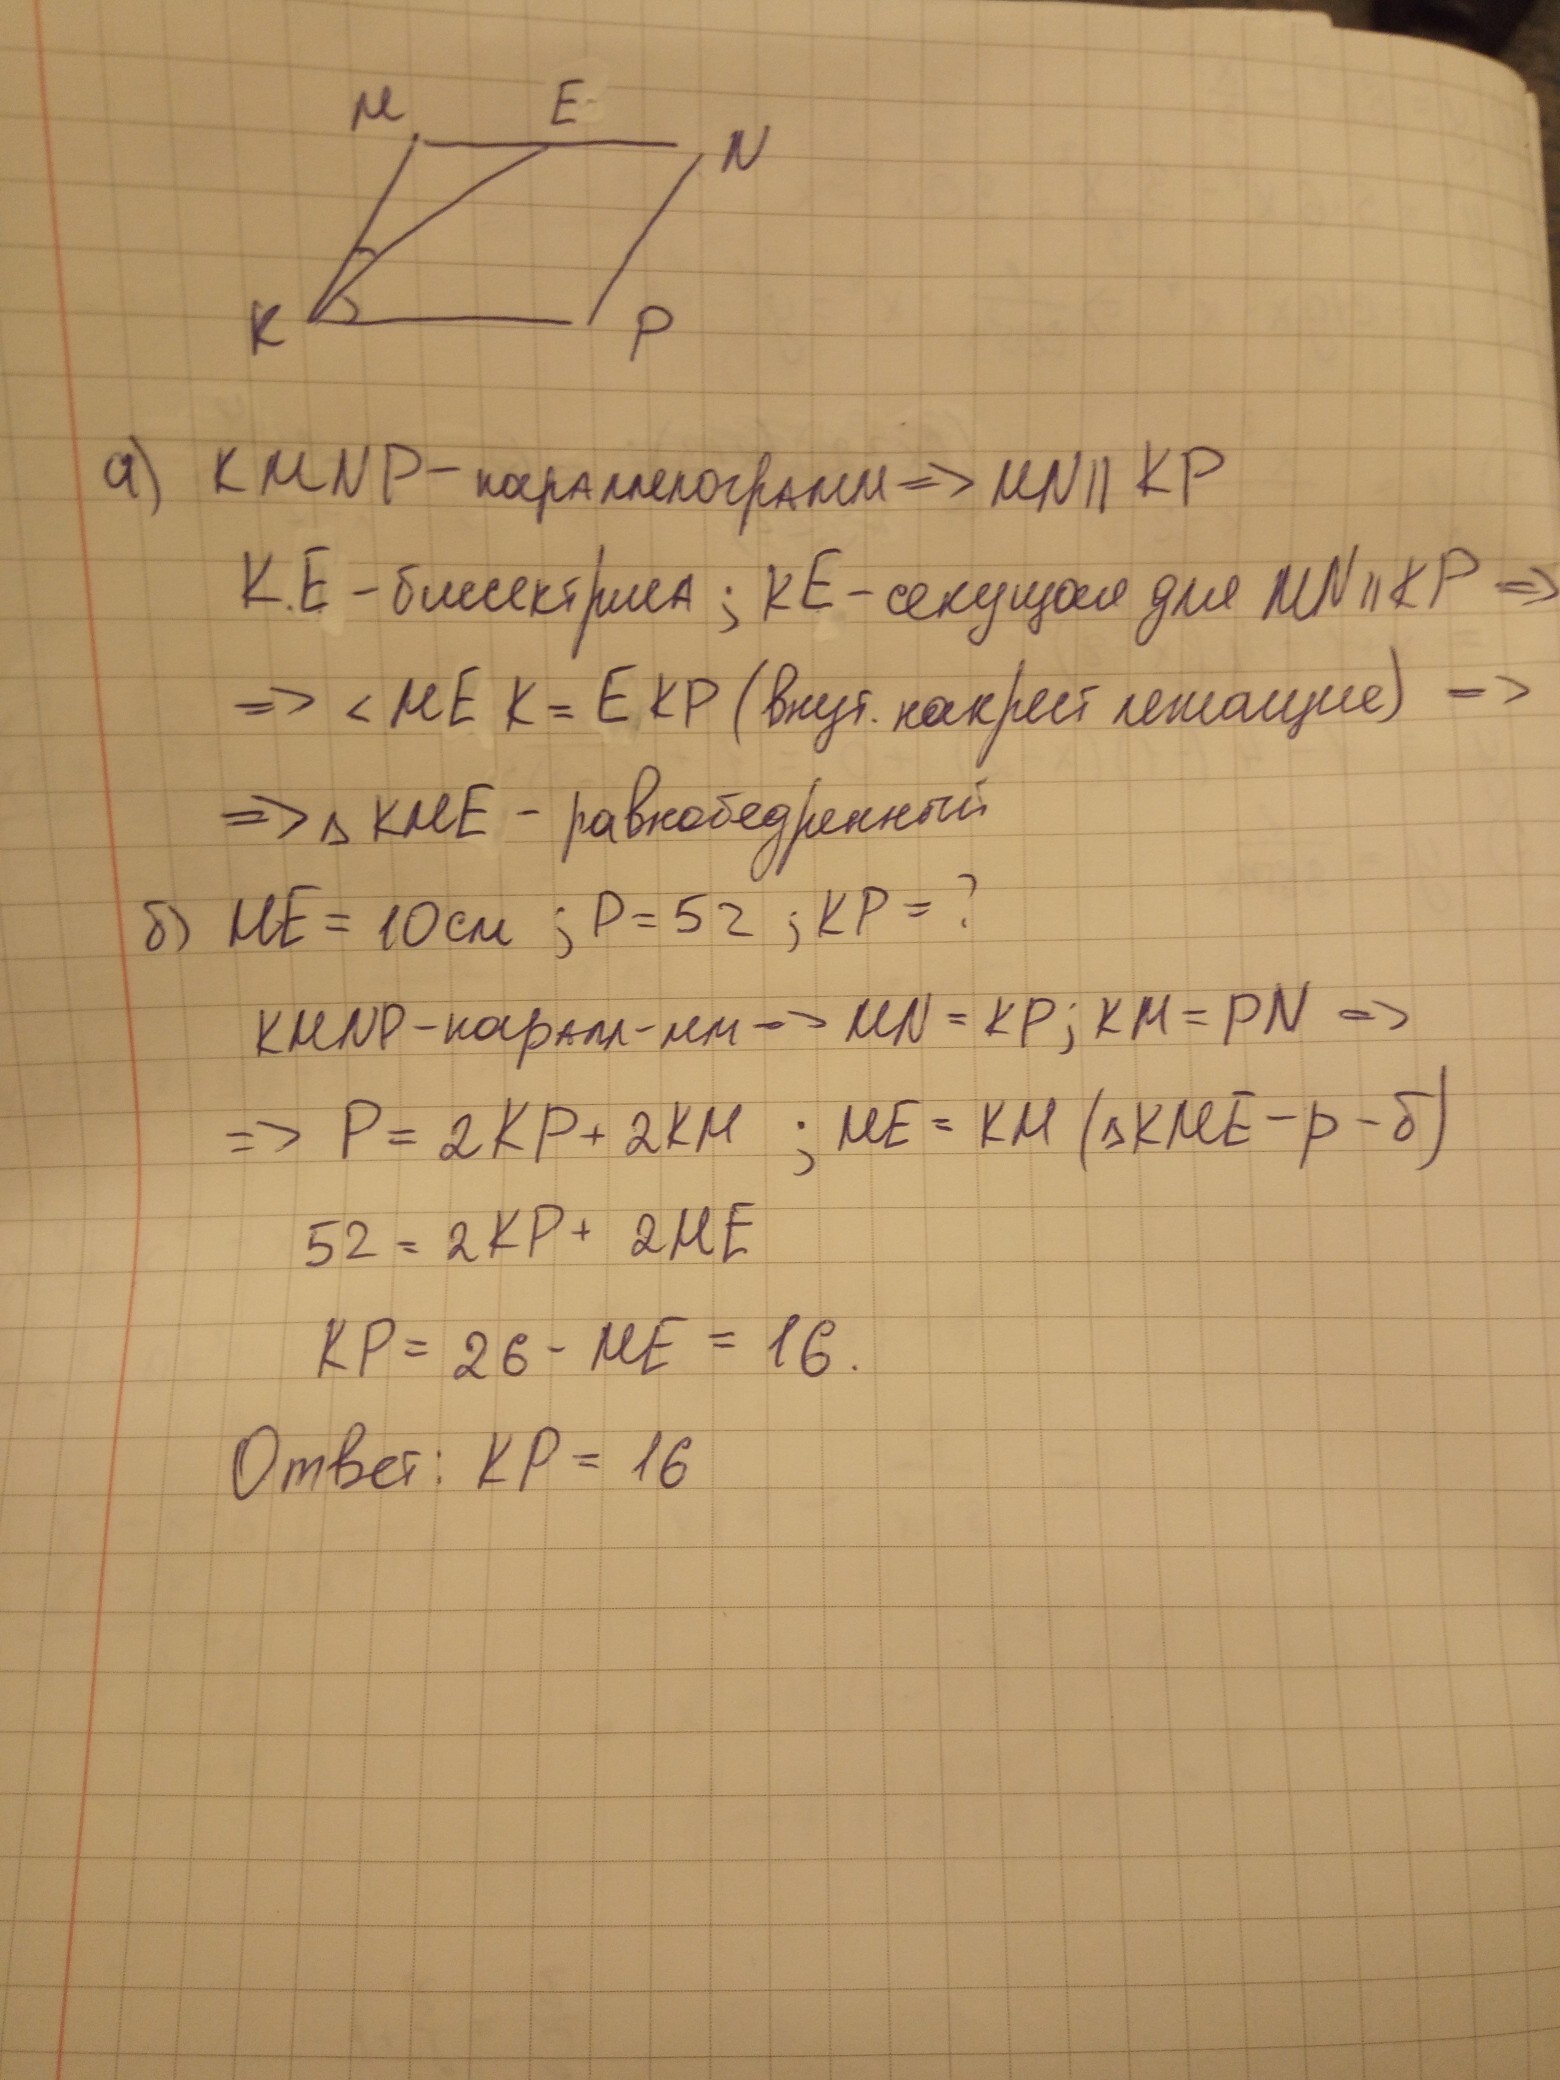 M E N
K P
а) KMNP - параллелограмм => MN || KP
K.E - биссектриса ; KE - секущая для MN || KP =>
=> < MEK = EKP (внут. накрест лежащие) =>
=> △ KME - равнобедренный
б) ME = 10 см ; P = 52 ; KP = ?
KMNP - паралл-мм => MN = KP ; KM = PN =>
=> P = 2KP + 2KM ; ME = KM (△KME - р - б)
52 = 2KP + 2ME
KP = 26 - ME = 16.
Ответ: KP = 16